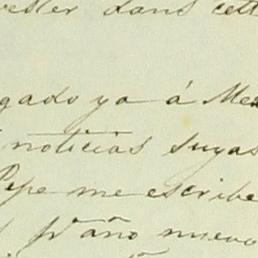 rester dans cett
gado ya á Me
noticias suyas
Pepe me escribe
pr año nuevo